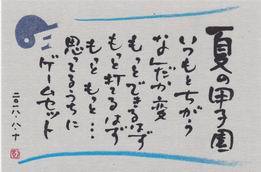 夏の甲子園
いつもとちがう
なんだか変
もっとできるはず
もっと打てるはず
もっともっと…
思ってるうちに
ゲームセット
二〇一八・八・十